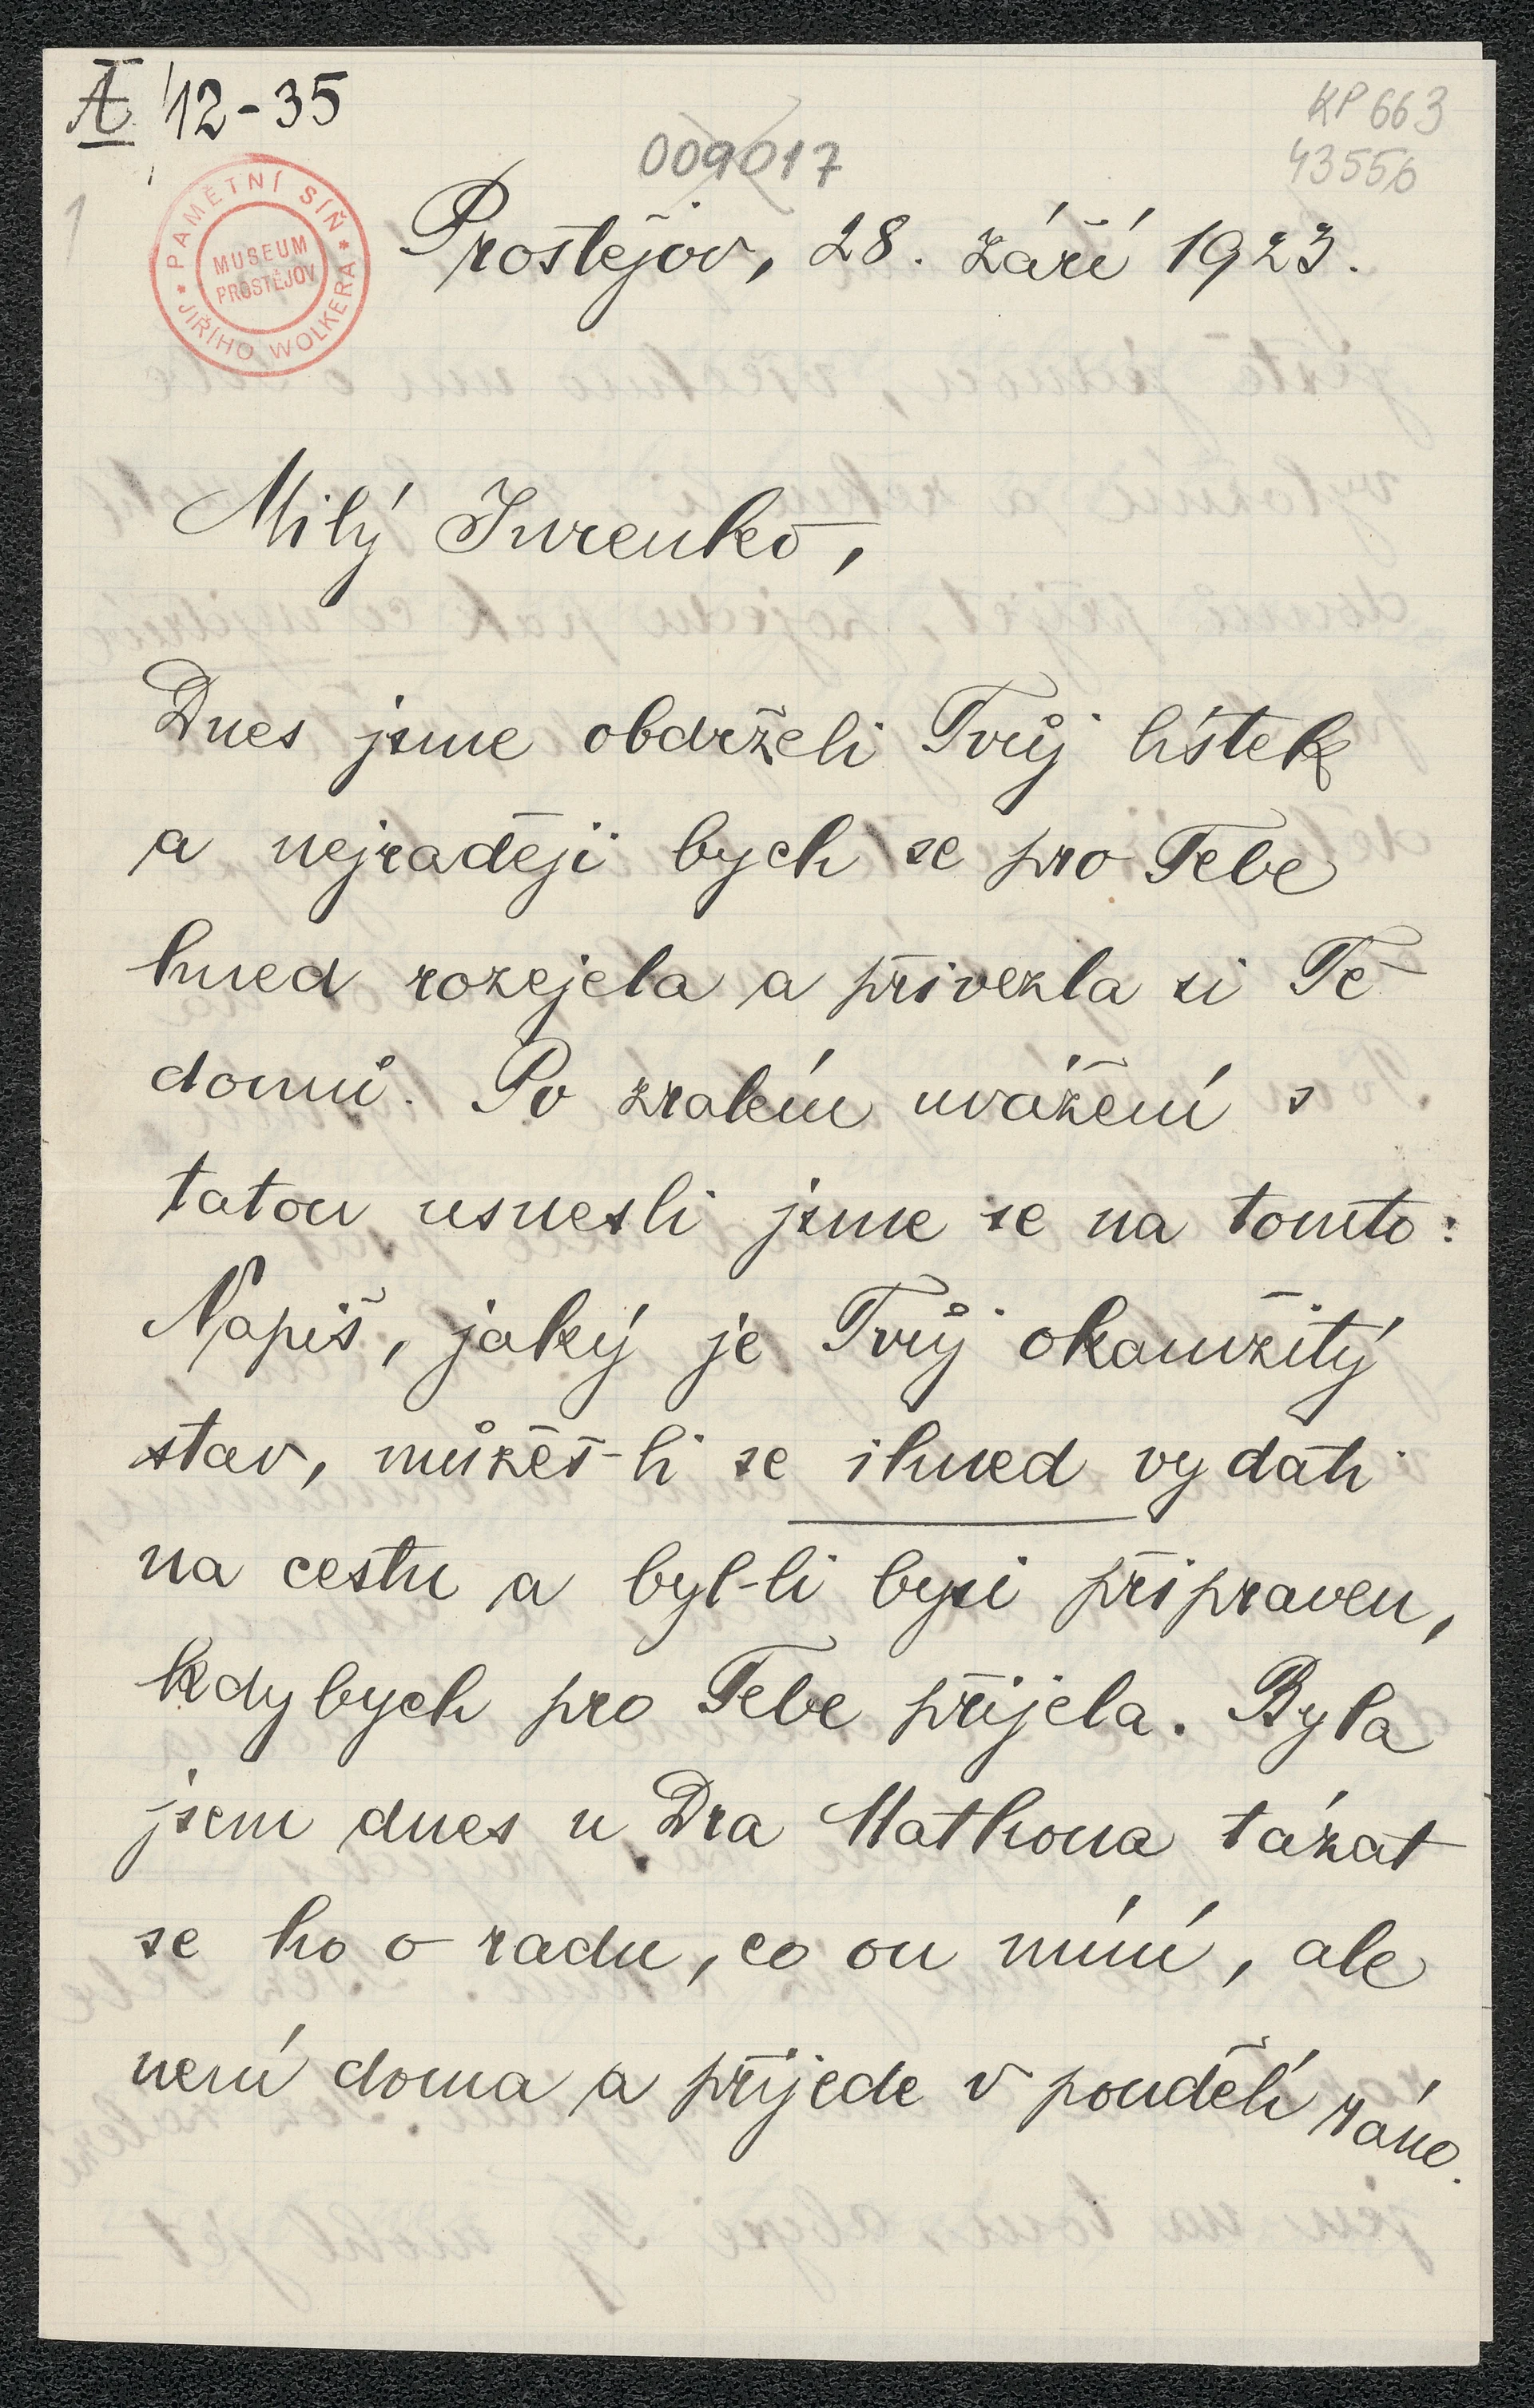 A 12-35
KP 663
43556
009017
1
PAMĚTNÍ SÍŇ
JIŘÍHO WOLKERA
MUSEUM
PROSTĚJOV
Prostějov, 28. září 1923.
Milý Jurenko,
Dnes jsme obdrželi Tvůj lístek
a nejraději bych se pro Tebe
hned rozejela a přivezla si Tě
domů. Po zralém uvážení s
tatou usnesli jsme se na tomto:
Napiš, jaký je Tvůj okamžitý
stav, můžeš-li se ihned vydati
na cestu a byl-li bysi připraven,
kdybych pro Tebe přijela. Byla
jsem dnes u Dra Mathona tázat
se ho o radu, co on míní, ale
není doma a přijede v pondělí ráno.